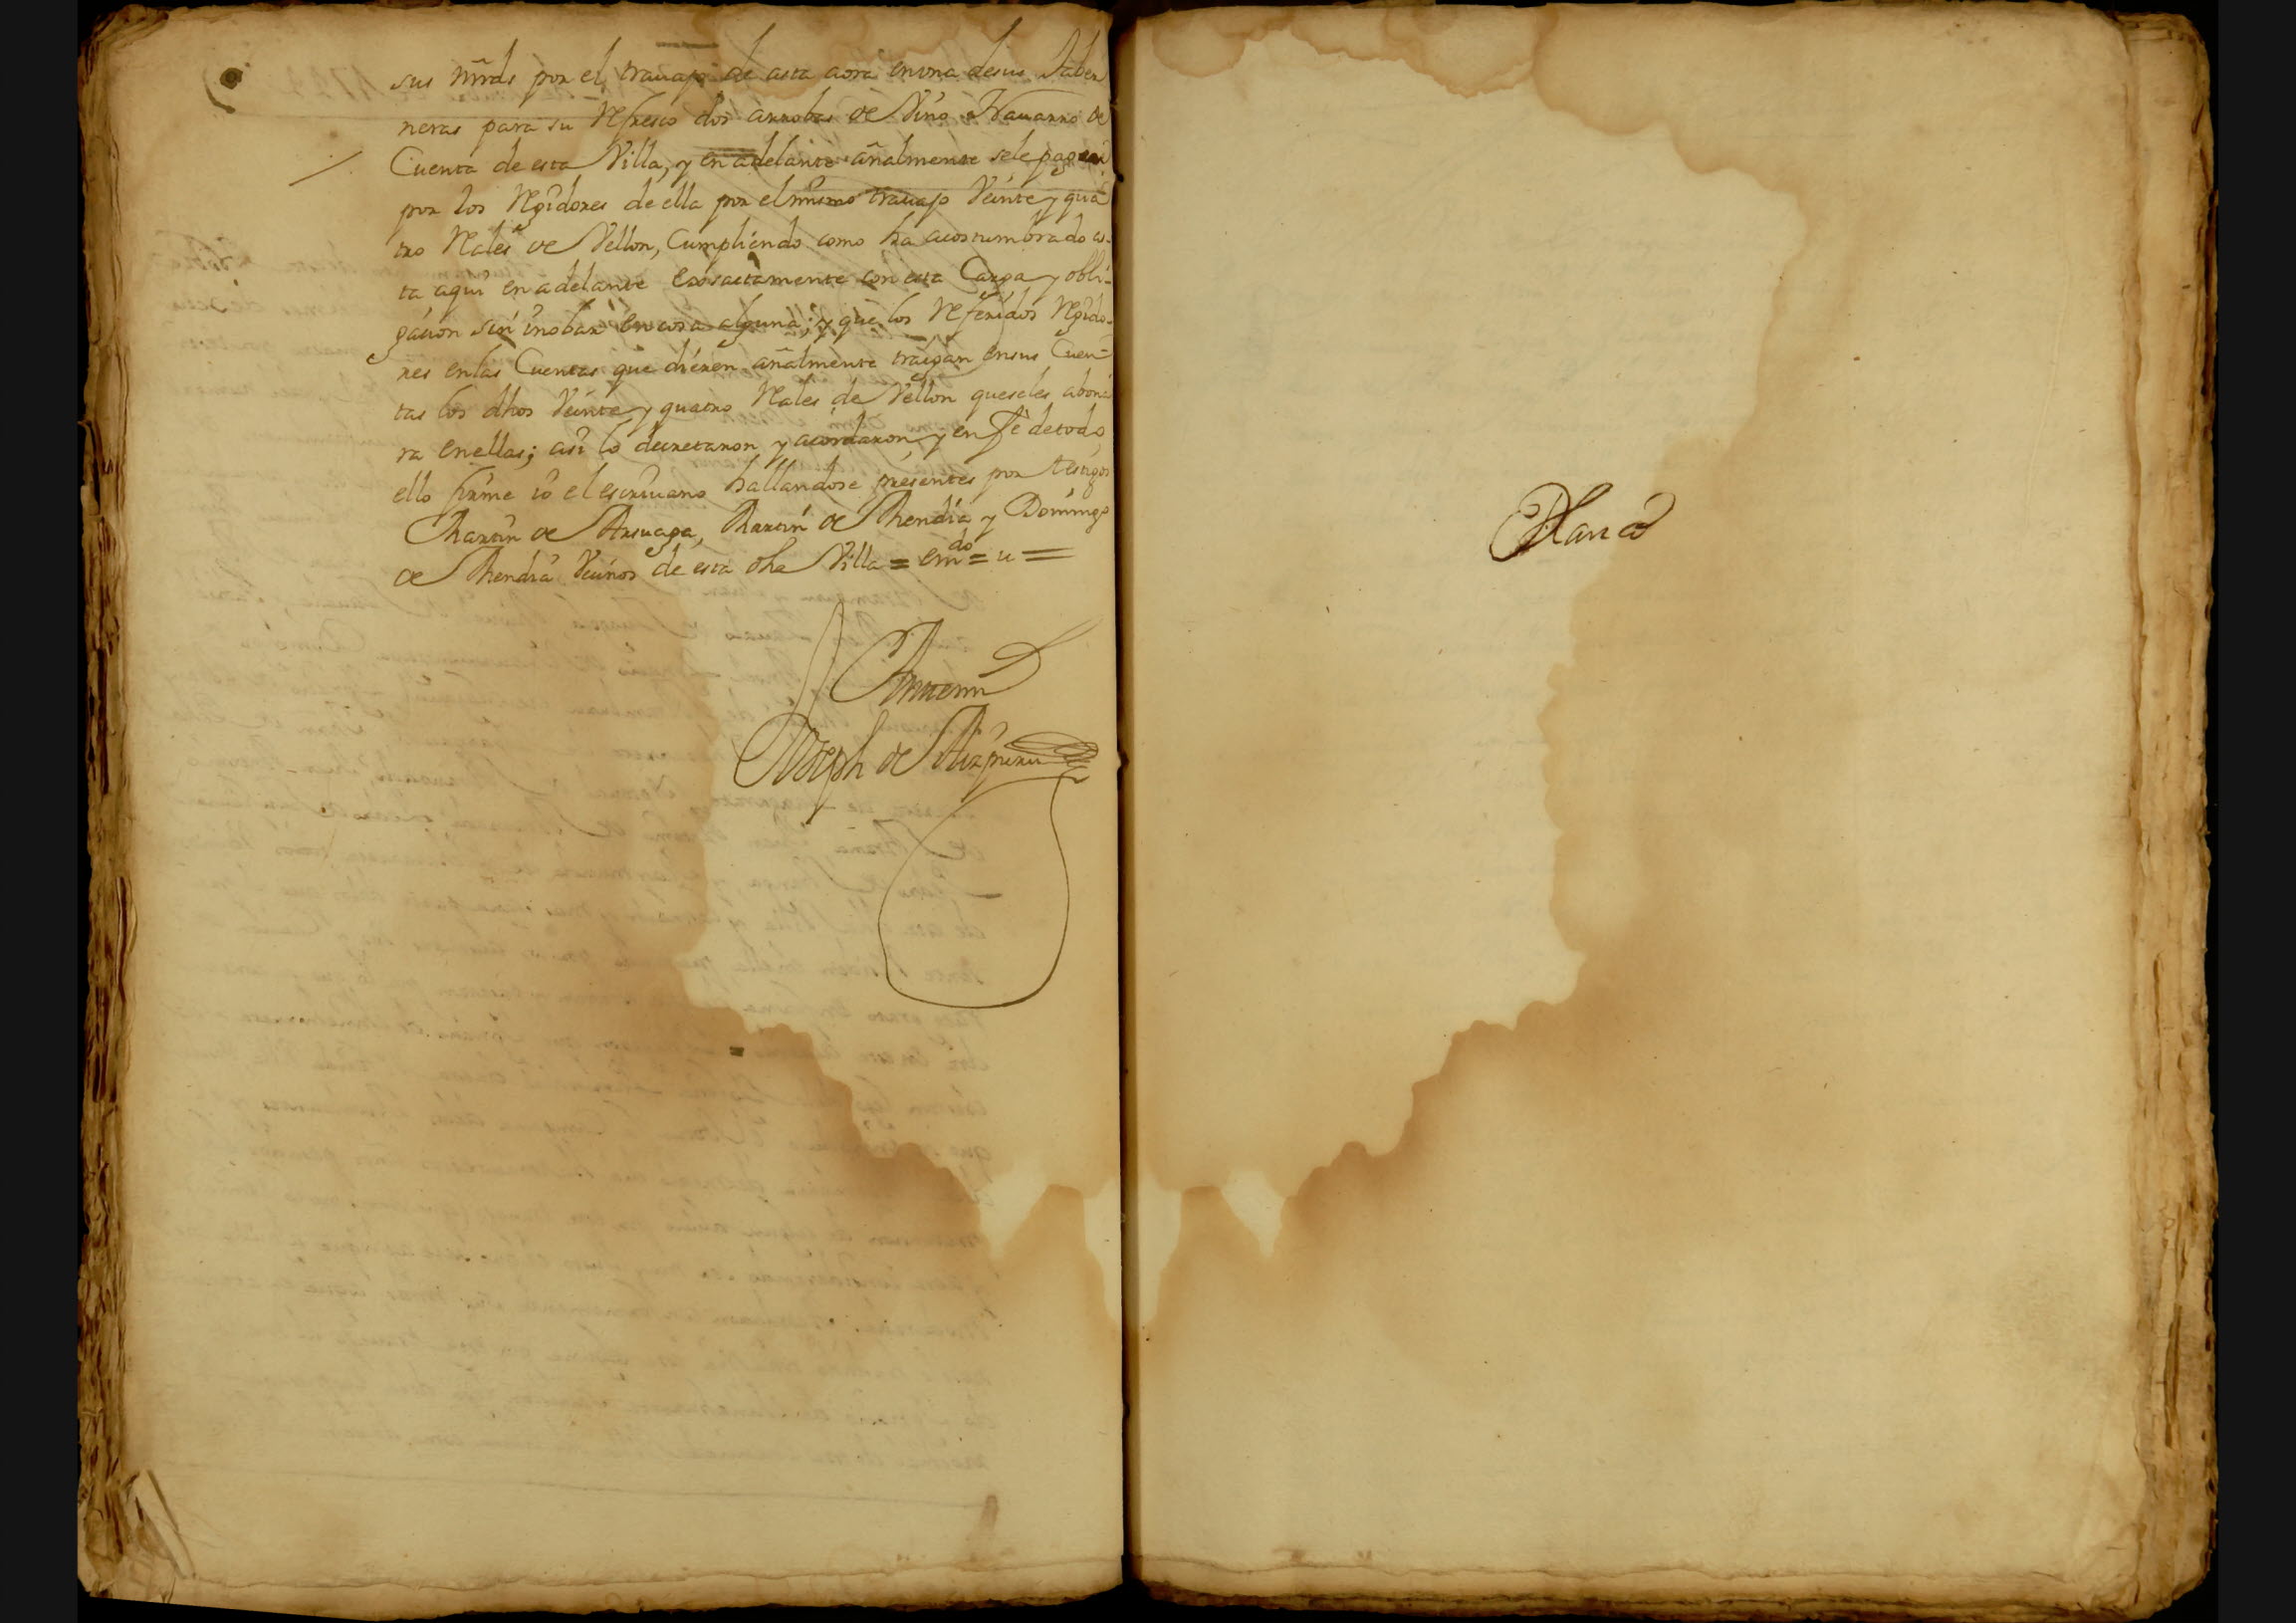 sus mrds por el trauajo de asta aora en vna de sus Taber
neras para su Refresco dos arrobas de Vino Nauarro de
Cuenta de esta Villa, y en adelante añalmente sele pagara
por los Rexidores de ella por el mismo trauajo Veinte y qua
tro Rales de Vellon, Cumpliendo como ha acostumbrado as-
ta aqui en adelante exsactamente con esta Carga y obli-
gacion sin inobar en cosa alguna; y que los Referidos Rexido-
res en las Cuentas que dieren añalmente traigan en sus Cuen-
tas los dhos Veinte y quatro Rales de Vellon que seles abona
ra en ellas; asi lo decretaron y acordaron, y en Fe de todo
ello firme io el escriuano hallandose presentes por testigos
Martin de Arsuaga, Martin de Mendia y Domingo
de Mendia Vecinos de esta dha Villa = emdo = u =
Antemi
Joseph de Aizpuru
Blanco